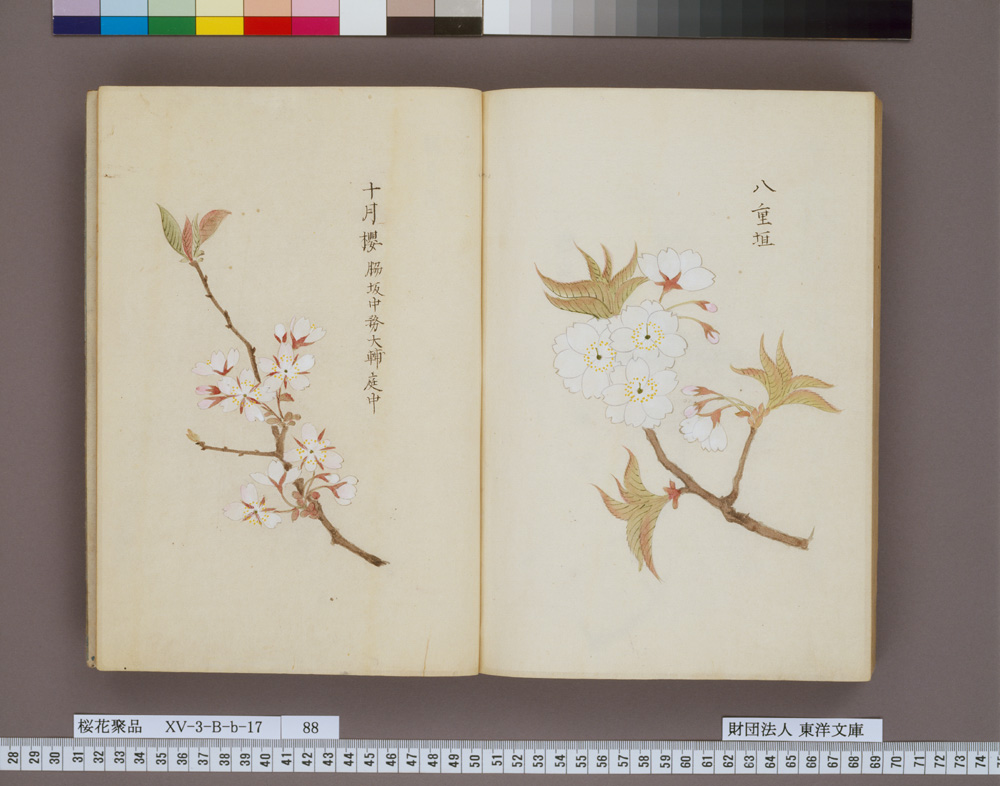 八重垣
十月櫻 脇坂中務大輔庭中
桜花聚品 XV-3-B-b-17 88
財団法人 東洋文庫
28 29 30 31 32 33 34 35 36 37 38 39 40 41 42 43 44 45 46 47 48 49 50 51 52 53 54 55 56 57 58 59 60 61 62 63 64 65 66 67 68 69 70 71 72 73 74